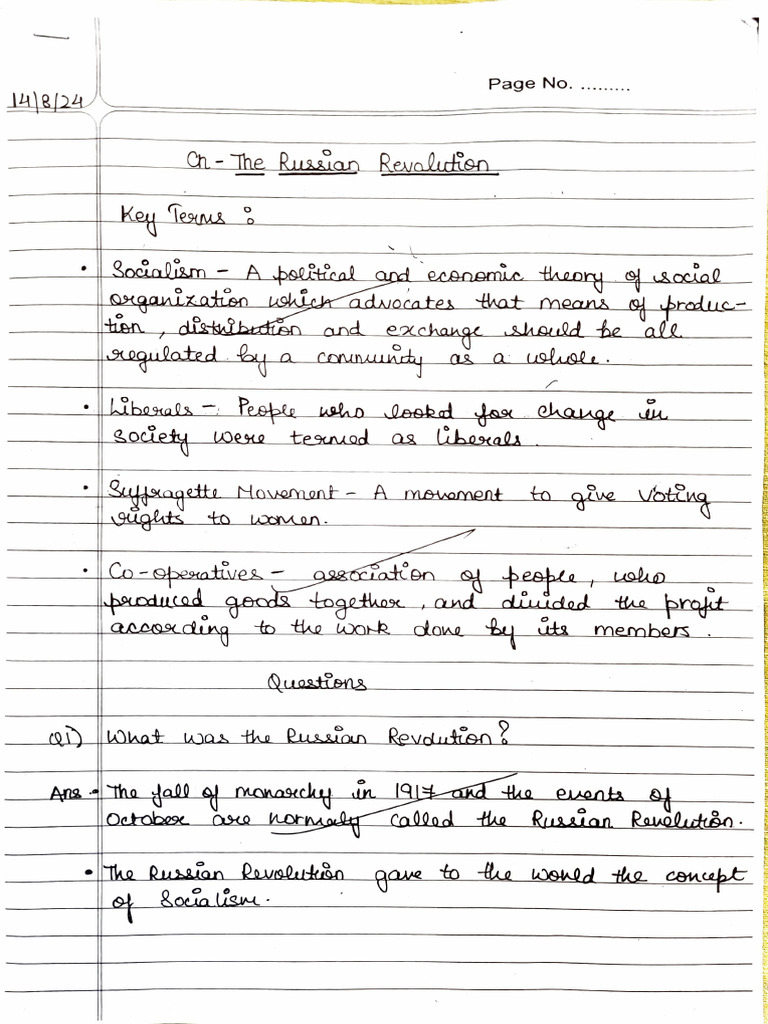 Page No. .........
14/8/24
Ch - The Russian Revolution
Key Terms :
• Socialism - A political and economic theory of social
organization which advocates that means of produc-
tion, distribution and exchange should be all
regulated by a community as a whole.
• Liberals - People who lookd for change in
society were termed as liberals.
• Suffragette Movement - A movement to give voting
rights to women.
• Co-operatives - association of people, who
produced goods together, and divided the profit
according to the work done by its members.
Questions
Q1) What was the Russian Revolution?
Ans • The fall of monarchy in 1917 and the events of
October are normaly called the Russian Revolution.
• The Russian Revolution gave to the world the concept
of Socialism.